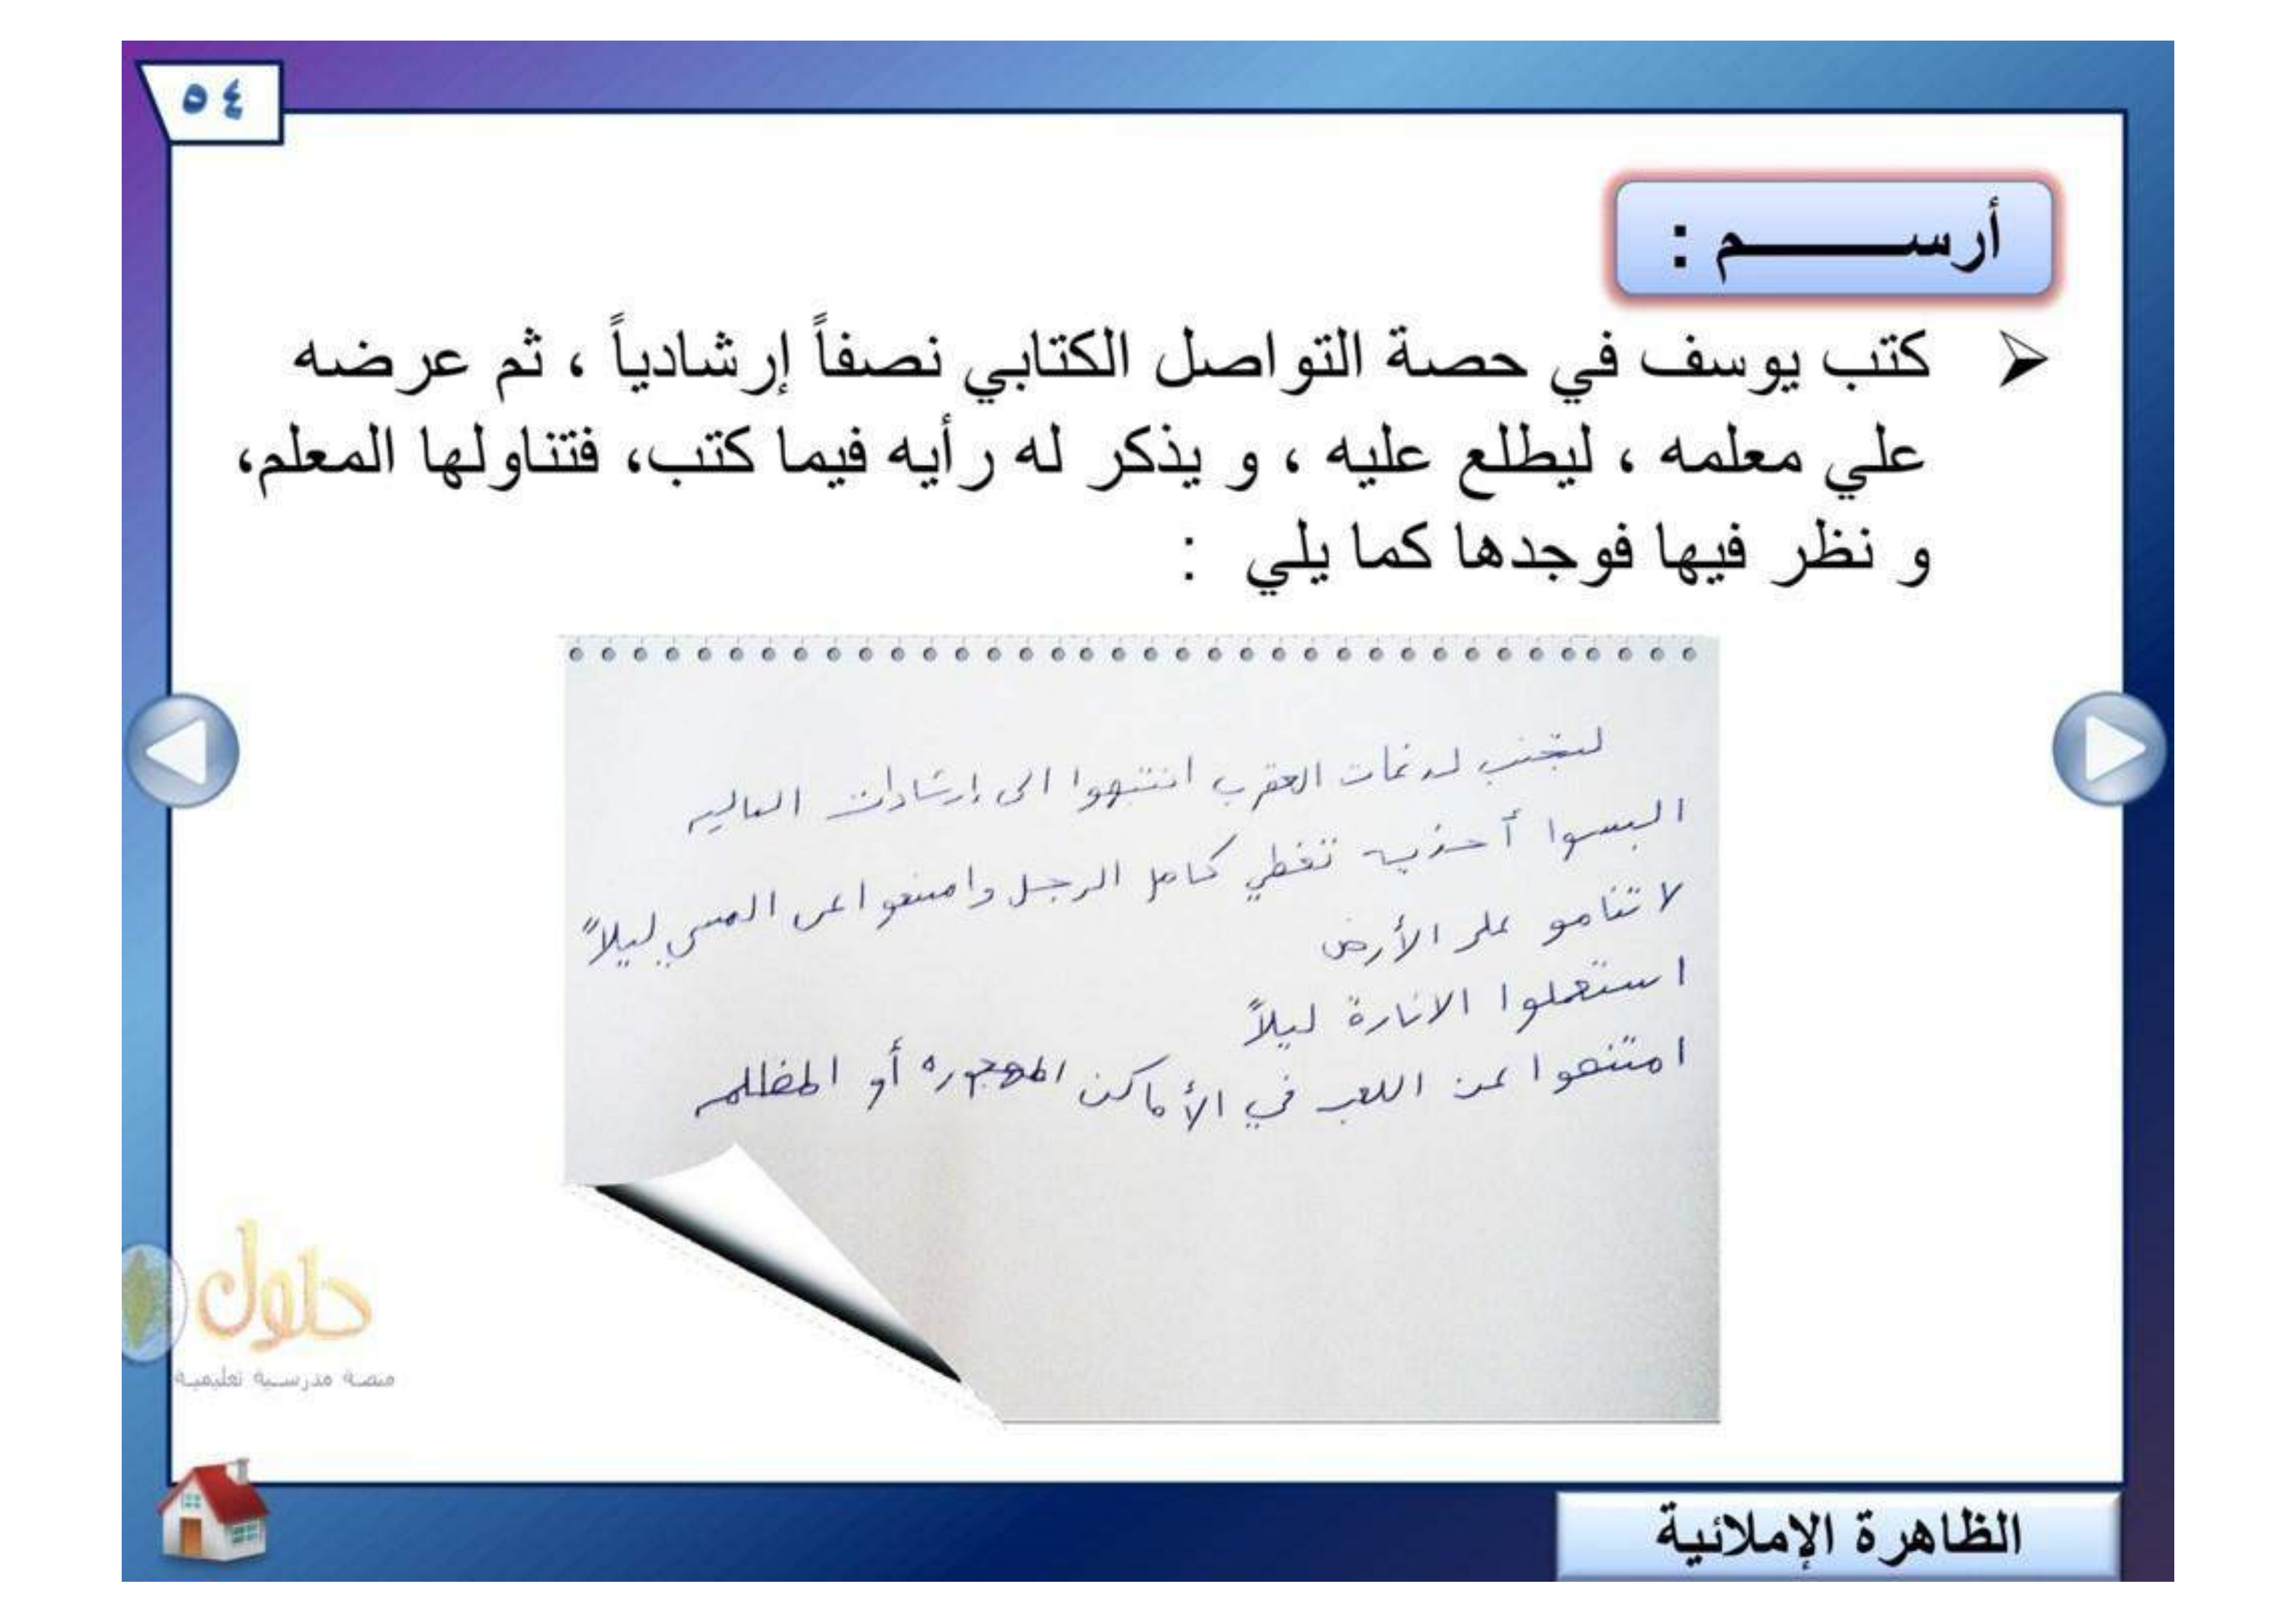 ٥٤
أرســــــم :
كتب يوسف في حصة التواصل الكتابي نصفاً إرشادياً ، ثم عرضه
علي معلمه ، ليطلع عليه ، و يذكر له رأيه فيما كتب، فتناولها المعلم،
و نظر فيها فوجدها كما يلي :
لتجنب لدغات العقرب انتبهوا الى إرشادات التاليه
البسوا أحذيه تغطي كامل الرجل وامنعوا عن المسي ليلاً
لا تنامو على الأرض
استعملوا الانارة ليلاً
امتنعوا عن اللعب في الأماكن المهجوره أو المظلمه
حلول
منصة مدرسية تعليمية
الظاهرة الإملائية